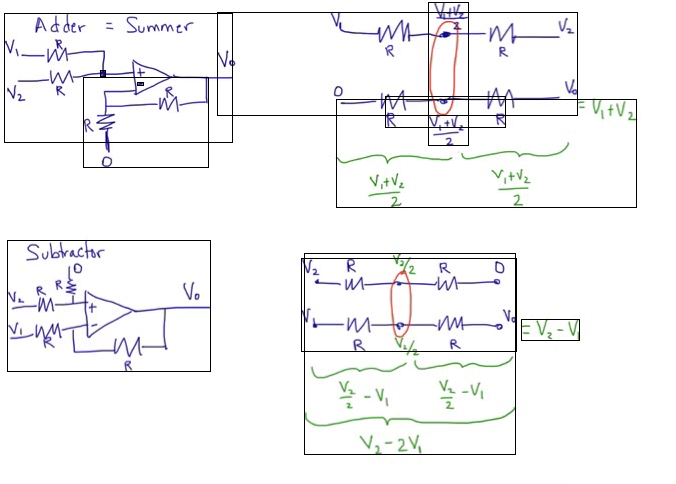 Adder = Summer
V₁ R
V₂ R
+
-
R
R
0
V₀
V₁ R (V₁+V₂)/2 R V₂
0 R (V₁+V₂)/2 R V₀ = V₁+V₂
(V₁+V₂)/2 (V₁+V₂)/2
Subtractor
0
R
V₂ R +
V₁ R -
R
V₀
V₂ R V₂/2 R 0
V₁ R V₂/2 R V₀ = V₂ - V₁
V₂/2 - V₁ V₂/2 - V₁
V₂ - 2V₁